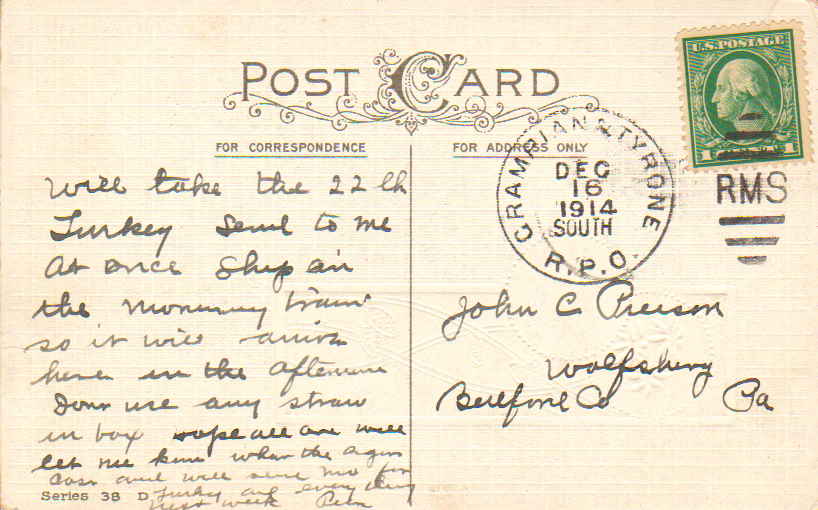 POST CARD
FOR CORRESPONDENCE
FOR ADDRESS ONLY
U.S. POSTAGE
GRAMPIAN & TYRONE
DEC
16
1914
SOUTH
R.P.O.
RMS
Will take the 22 lb
Turkey Send to me
At once Ship on
the Morning train
so it will arrive
here in the afternoon
Dont use any straw
in box hope all are well
let me know what the
and will send for
Turkey and everything
next week
John C Pierson
Wolfsburg
Bedford Co Pa
Series 38 D